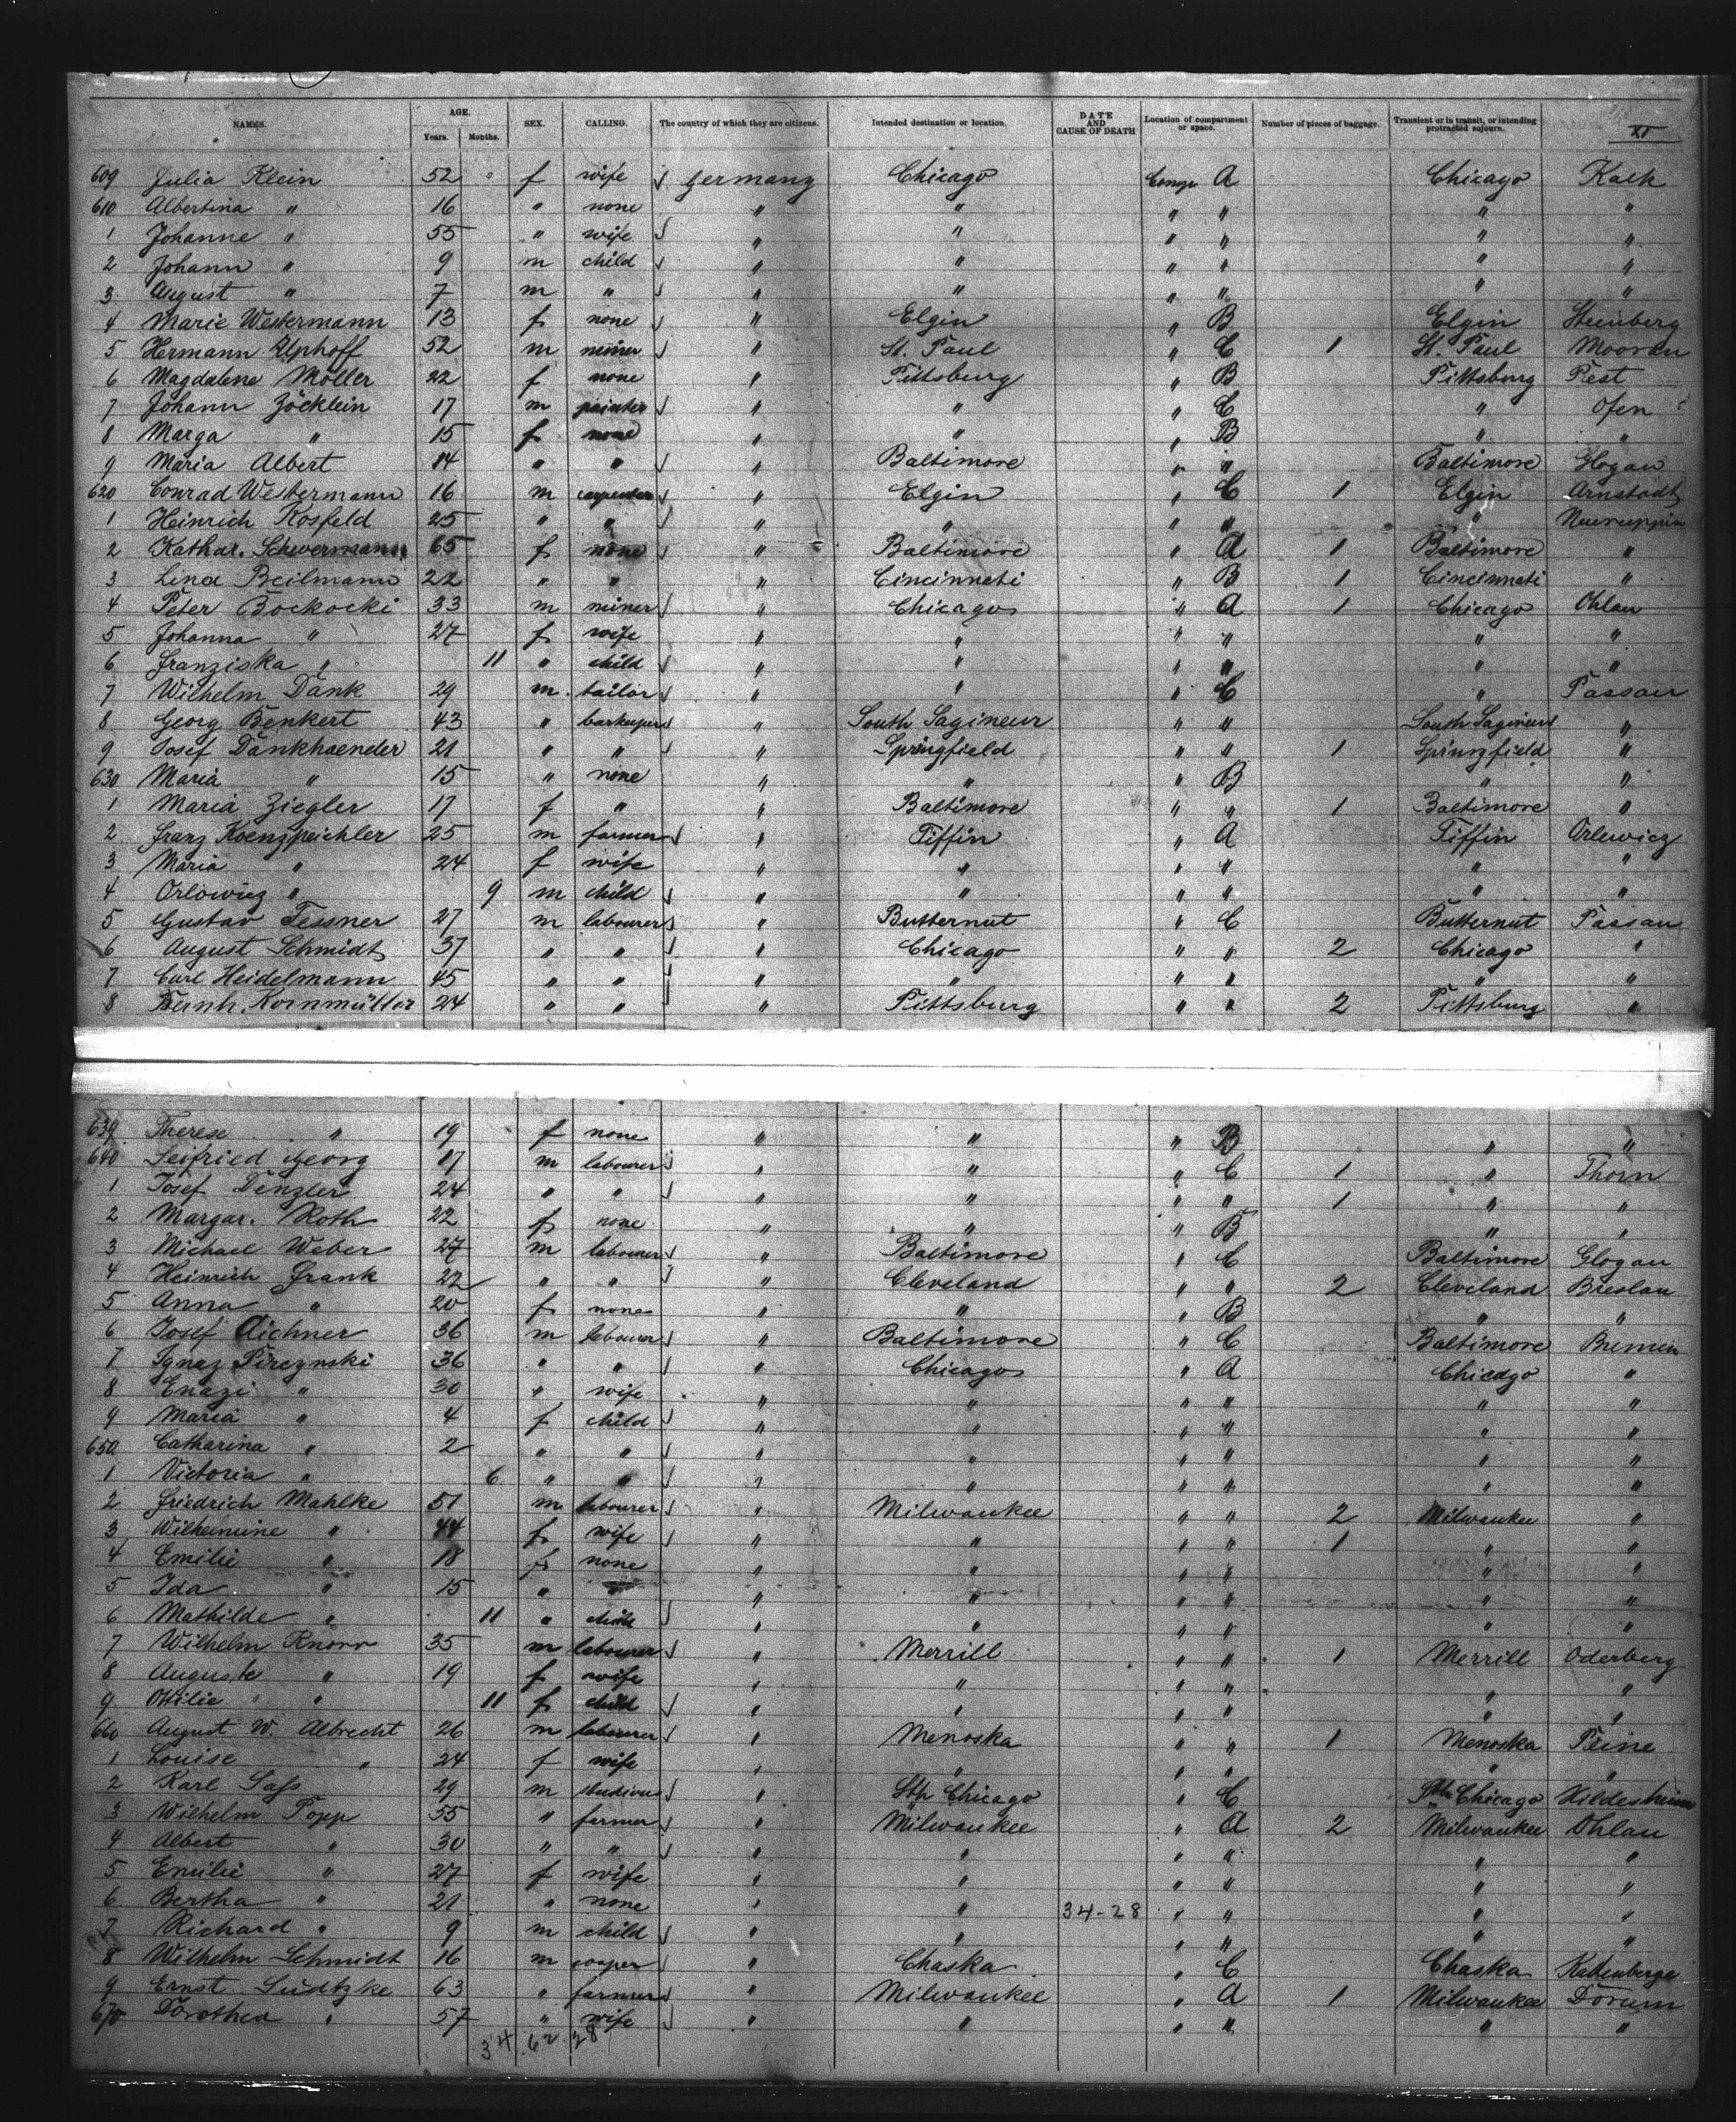 NAMES. AGE. Years. Months. SEX. CALLING. The country of which they are citizens. Intended destination or location. DATE AND CAUSE OF DEATH Location of compartment or space. Number of pieces of baggage. Transient or in transit, or intending protracted sojourn. XI
609 Julia Klein 52 f wife Germany Chicago Comp. A Chicago Kalk
610 Albertina " 16 " none " " " " " "
1 Johanne " 55 " wife " " " " " "
2 Johann " 9 m child " " " " " "
3 August " 7 m " " " " " " "
4 Marie Westermann 13 f none " Elgin " B Elgin
5 Hermann Uphoff 52 m miner " St. Paul " C 1 St. Paul
6 Magdalene Möller 22 f none " Pittsburg " B Pittsburg Pest
7 Johann Zöcklein 17 m painter " " " C " Ofen
8 Marga " 15 f none " " " B " "
9 Maria Albert 14 " " " Baltimore " " Baltimore Glogau
620 Conrad Westermann 16 m carpenter " Elgin " C 1 Elgin Arnstadt
1 Heinrich Kosfeld 25 " " " " " " " Neuruppin
2 Kathar. Schwermann 65 f none " Baltimore " A 1 Baltimore "
3 Lina Beilmann 22 " " " Cincinnati " B 1 Cincinnati "
4 Peter Bockocki 33 m miner " Chicago " A 1 Chicago Ohlau
5 Johanna " 27 f wife " " " " " "
6 Franziska " 11 " child " " " " " "
7 Wilhelm Dank 29 m. tailor " " " C " Passau
8 Georg Benkert 43 " barkeeper " South Sagineur " " South Sagineur "
9 Josef Dankhaender 21 " " " Springfield " " 1 Springfield "
630 Maria " 15 " none " " " B " "
1 Maria Ziegler 17 f " " Baltimore " " 1 Baltimore "
2 Franz 25 m farmer " Tiffin " A Tiffin Orlewicz
3 Maria " 24 f wife " " " " " "
4 Orlowicz " 9 m child " " " " " "
5 Gustav Tessner 27 m labourer " Butternut " C Butternut Passau
6 August Schmidt 37 " " " Chicago " " 2 Chicago "
7 Carl Heidelmann 45 " " " " " " " "
8 Bernh. Kornmüller 24 " " " Pittsburg " " 2 Pittsburg "
639 Therese " 19 f none " " " B " "
640 Seifried Georg 17 m labourer " " " C 1 " Thorn
1 Josef Denzler 24 " " " " " " 1 " "
2 Margar. Roth 22 f none " " " B " "
3 Michael Weber 27 m labourer " Baltimore " C Baltimore Glogau
4 Heinrich Frank 22 " " " Cleveland " " 2 Cleveland Breslau
5 Anna " 20 f none " " " B " "
6 Josef Aichner 36 m labourer " Baltimore " C Baltimore Bremen
7 Ignaz Pirczynski 36 " " " Chicago " A Chicago "
8 Enazi " 30 " wife " " " " " "
9 Maria " 4 f child " " " " " "
650 Catharina " 2 " " " " " " " "
1 Victoria " 6 " " " " " " " "
2 Friedrich Mahlke 51 m labourer " Milwaukee " " 2 Milwaukee "
3 Wilhelmine " 44 f wife " " " " 1 " "
4 Emilie " 18 f none " " " " " "
5 Ida " 15 " " " " " " " "
6 Mathilde " 11 " child " " " " " "
7 Wilhelm Knorr 35 m labourer " Merrill " " 1 Merrill Oderberg
8 Auguste " 19 f wife " " " " " "
9 Ottilie " 11 f child " " " " " "
660 August W. Albrecht 26 m labourer " Menoska " " 1 Menoska Peine
1 Louise " 24 f wife " " " " " "
2 Karl Sass 29 m " Sth Chicago " C Sth Chicago Hildesheim
3 Wilhelm Popp 55 " farmer " Milwaukee " A 2 Milwaukee Ohlau
4 Albert " 30 " " " " " " " "
5 Emilie " 27 f wife " " " " " "
6 Bertha " 21 " none " " 34-28 " " " "
7 Richard " 9 m child " " " " " "
8 Wilhelm Schmidt 16 m cooper " Chaska " C Chaska
9 Ernst Lüdtzke 63 " farmer " Milwaukee " A 1 Milwaukee Dorum
670 Dorothea " 57 " wife " " " " " "
34 62 28